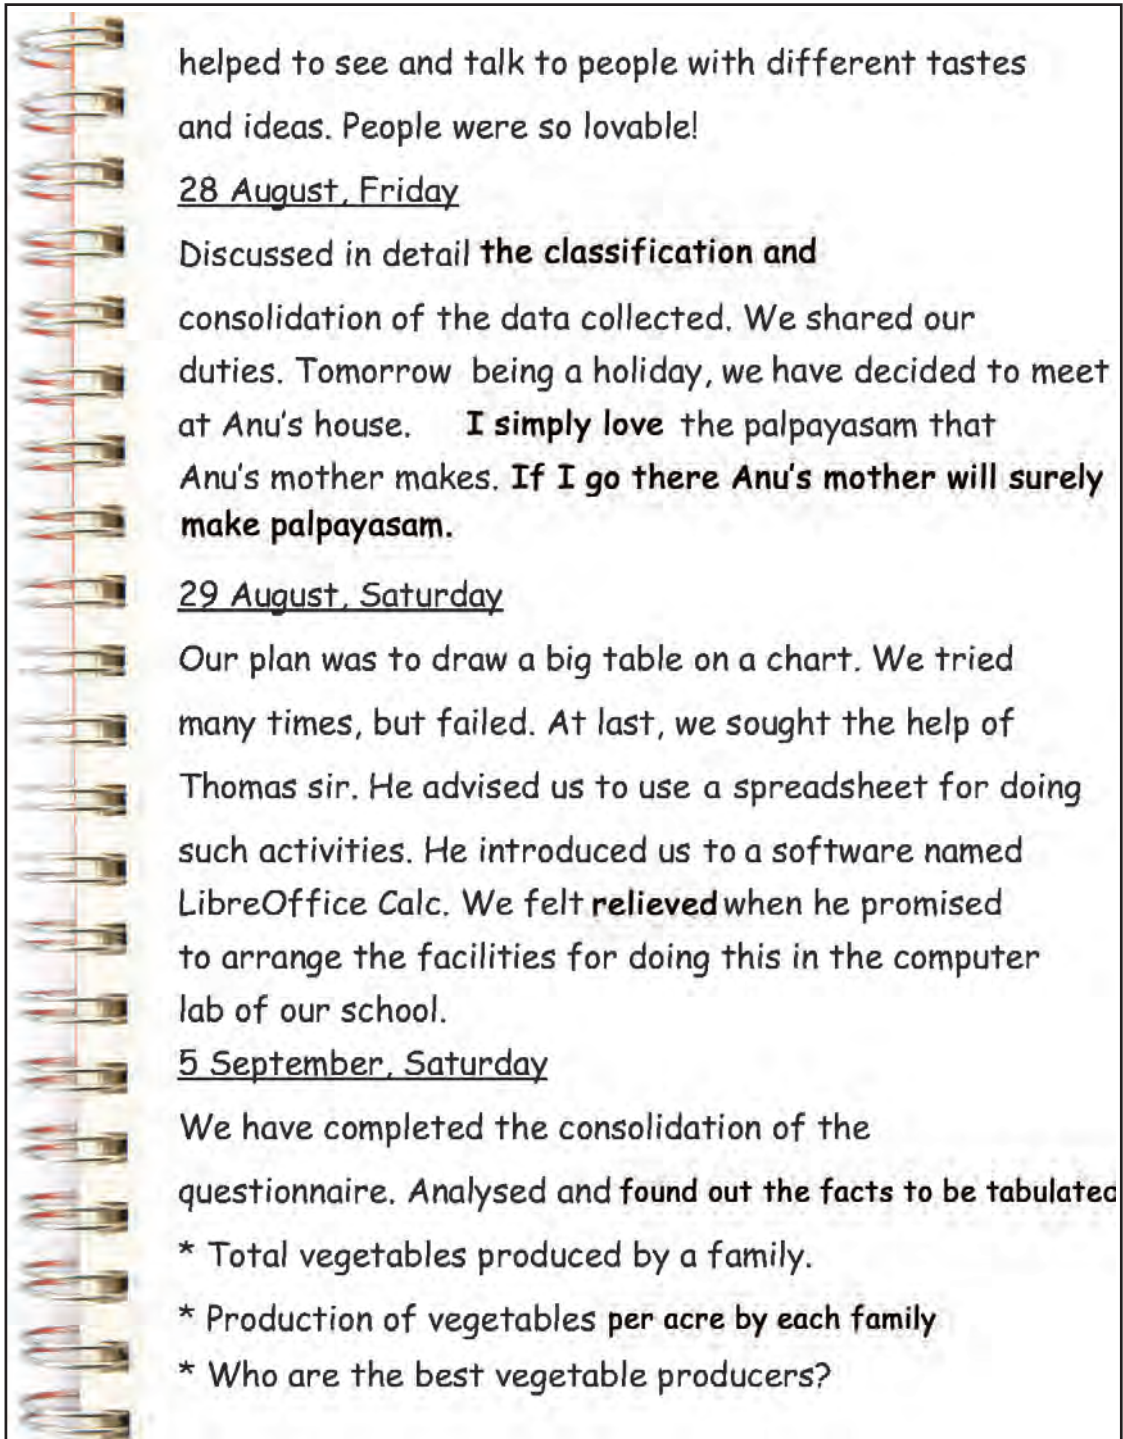 helped to see and talk to people with different tastes
and ideas. People were so lovable!
28 August, Friday
Discussed in detail the classification and
consolidation of the data collected. We shared our
duties. Tomorrow being a holiday, we have decided to meet
at Anu's house. I simply love the palpayasam that
Anu's mother makes. If I go there Anu's mother will surely
make palpayasam.
29 August, Saturday
Our plan was to draw a big table on a chart. We tried
many times, but failed. At last, we sought the help of
Thomas sir. He advised us to use a spreadsheet for doing
such activities. He introduced us to a software named
LibreOffice Calc. We felt relieved when he promised
to arrange the facilities for doing this in the computer
lab of our school.
5 September, Saturday
We have completed the consolidation of the
questionnaire. Analysed and found out the facts to be tabulated
* Total vegetables produced by a family.
* Production of vegetables per acre by each family
* Who are the best vegetable producers?